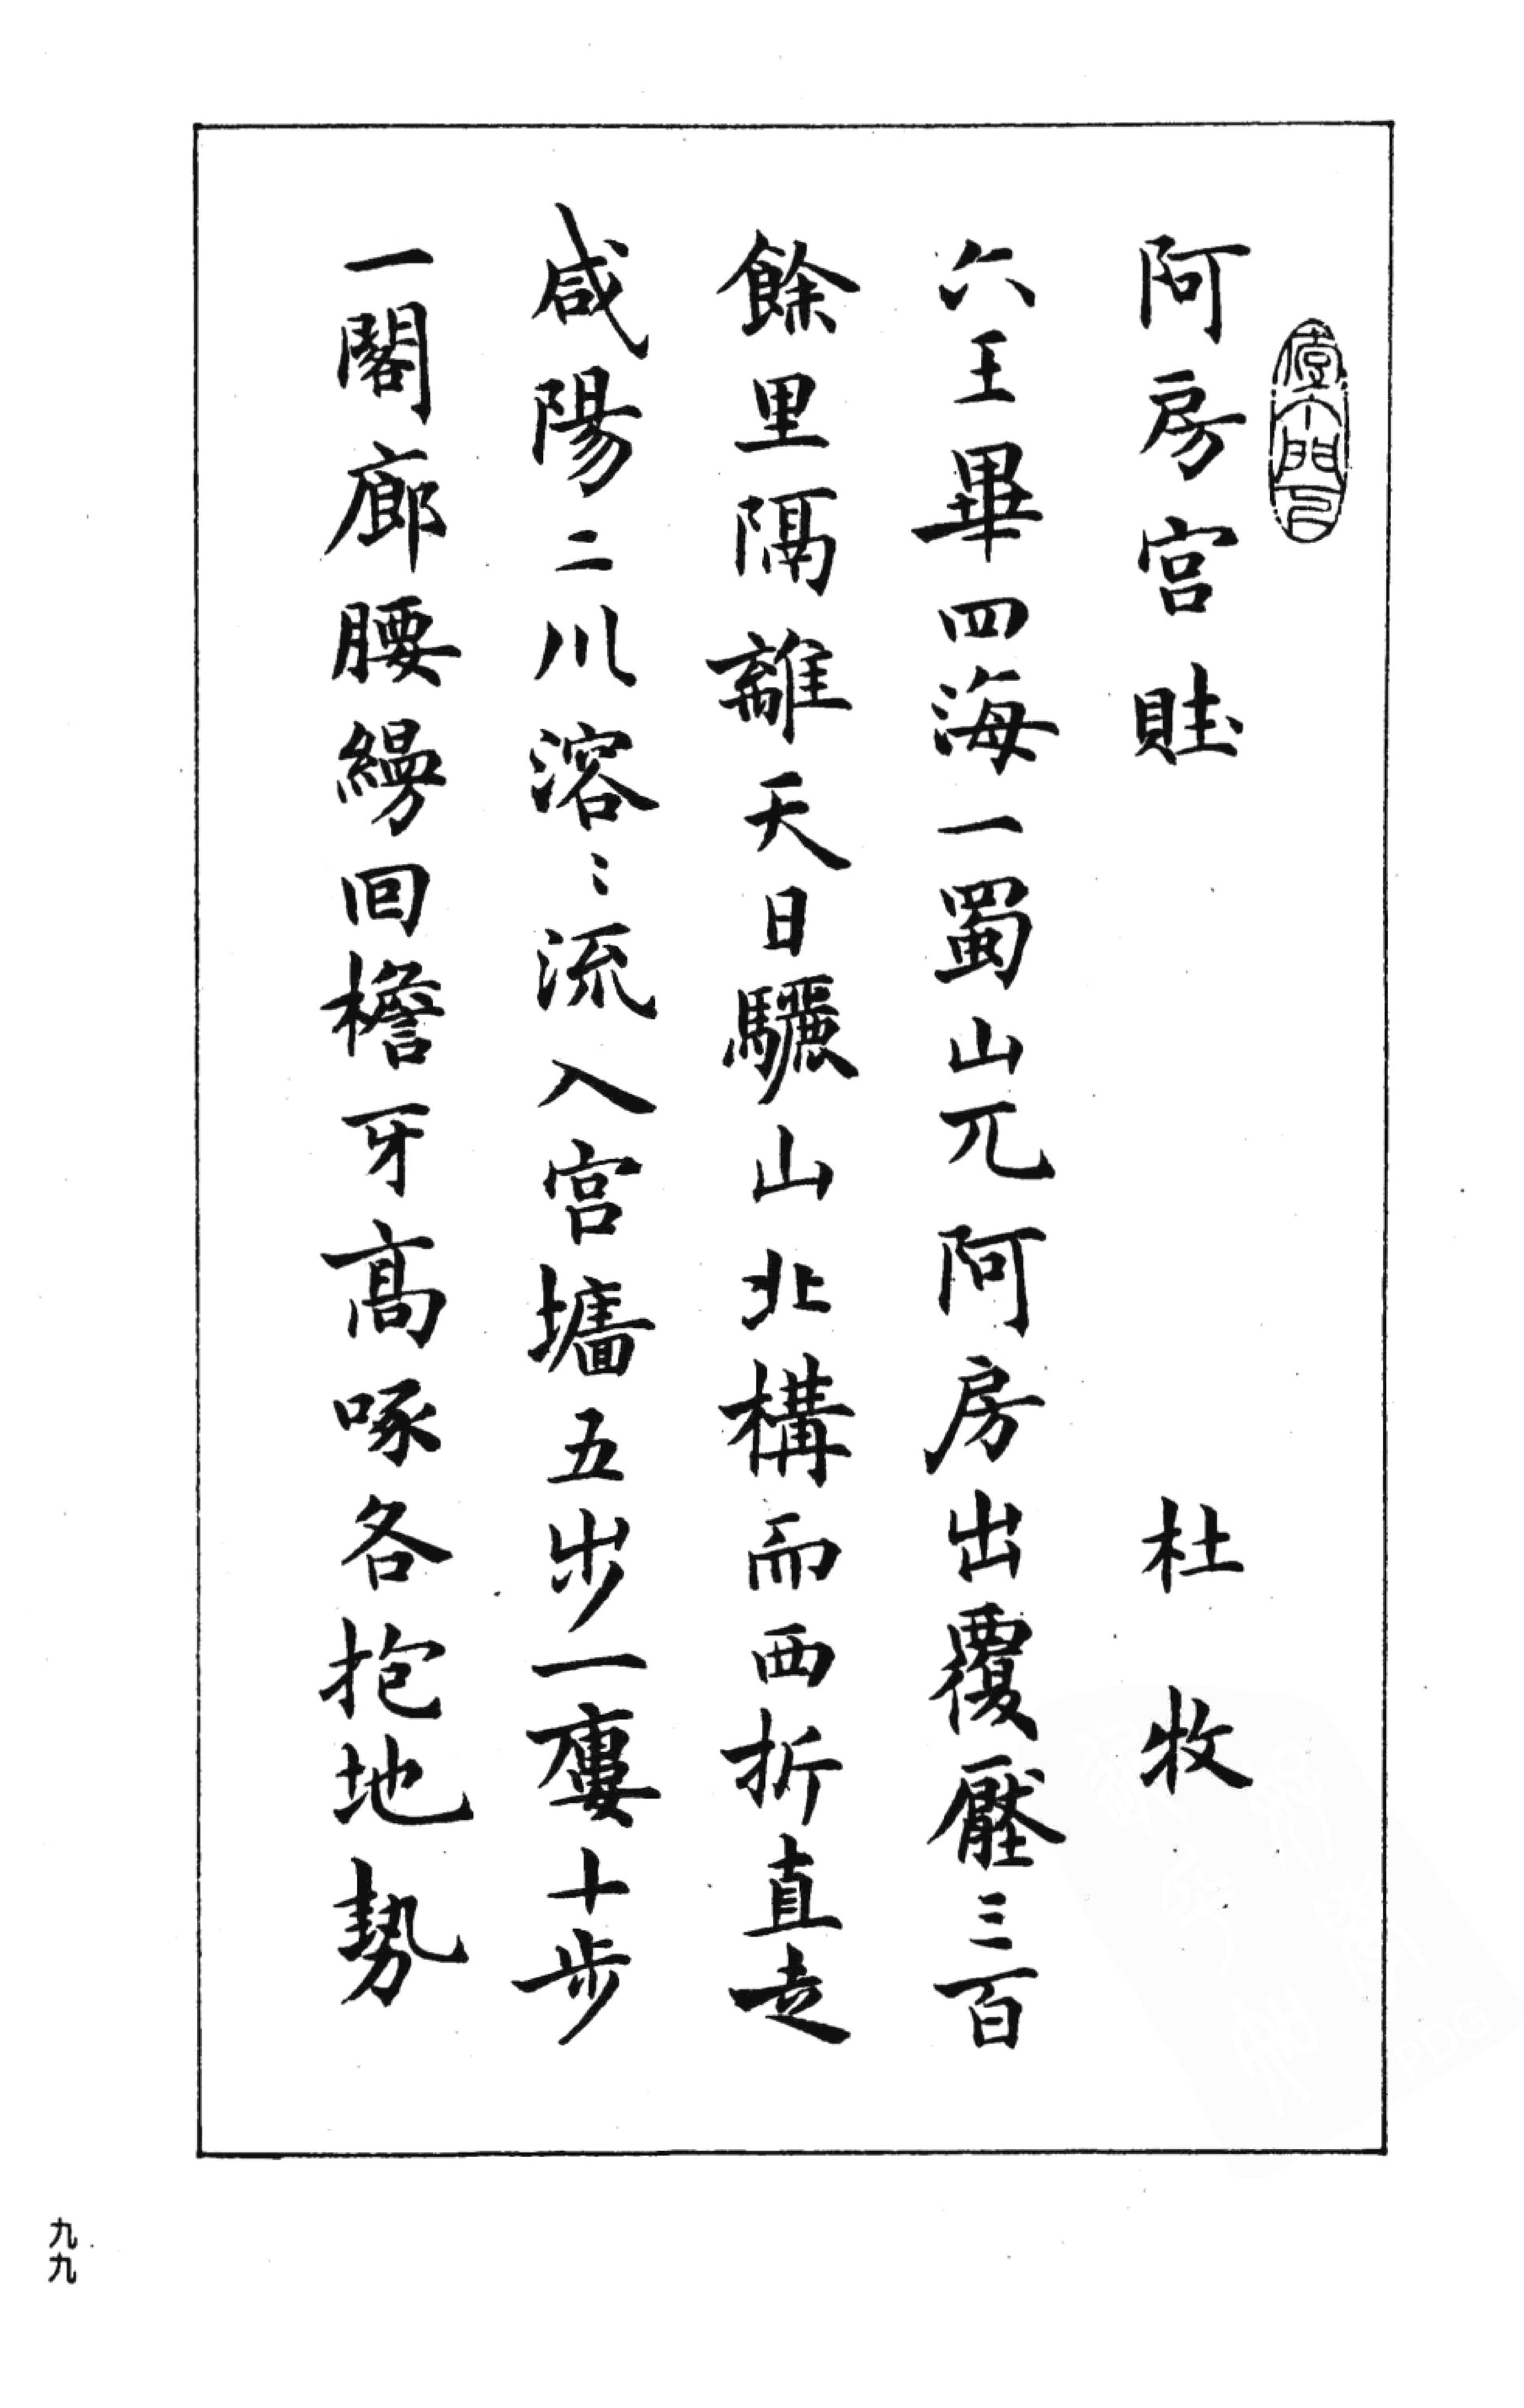 阿房宮賦　杜牧
六王畢四海一蜀山兀阿房出覆壓三百
餘里隔離天日驪山北構而西折直走
咸陽二川溶〻流入宮墻五步一樓十步
一閣廊腰縵回檐牙高啄各抱地勢
九九